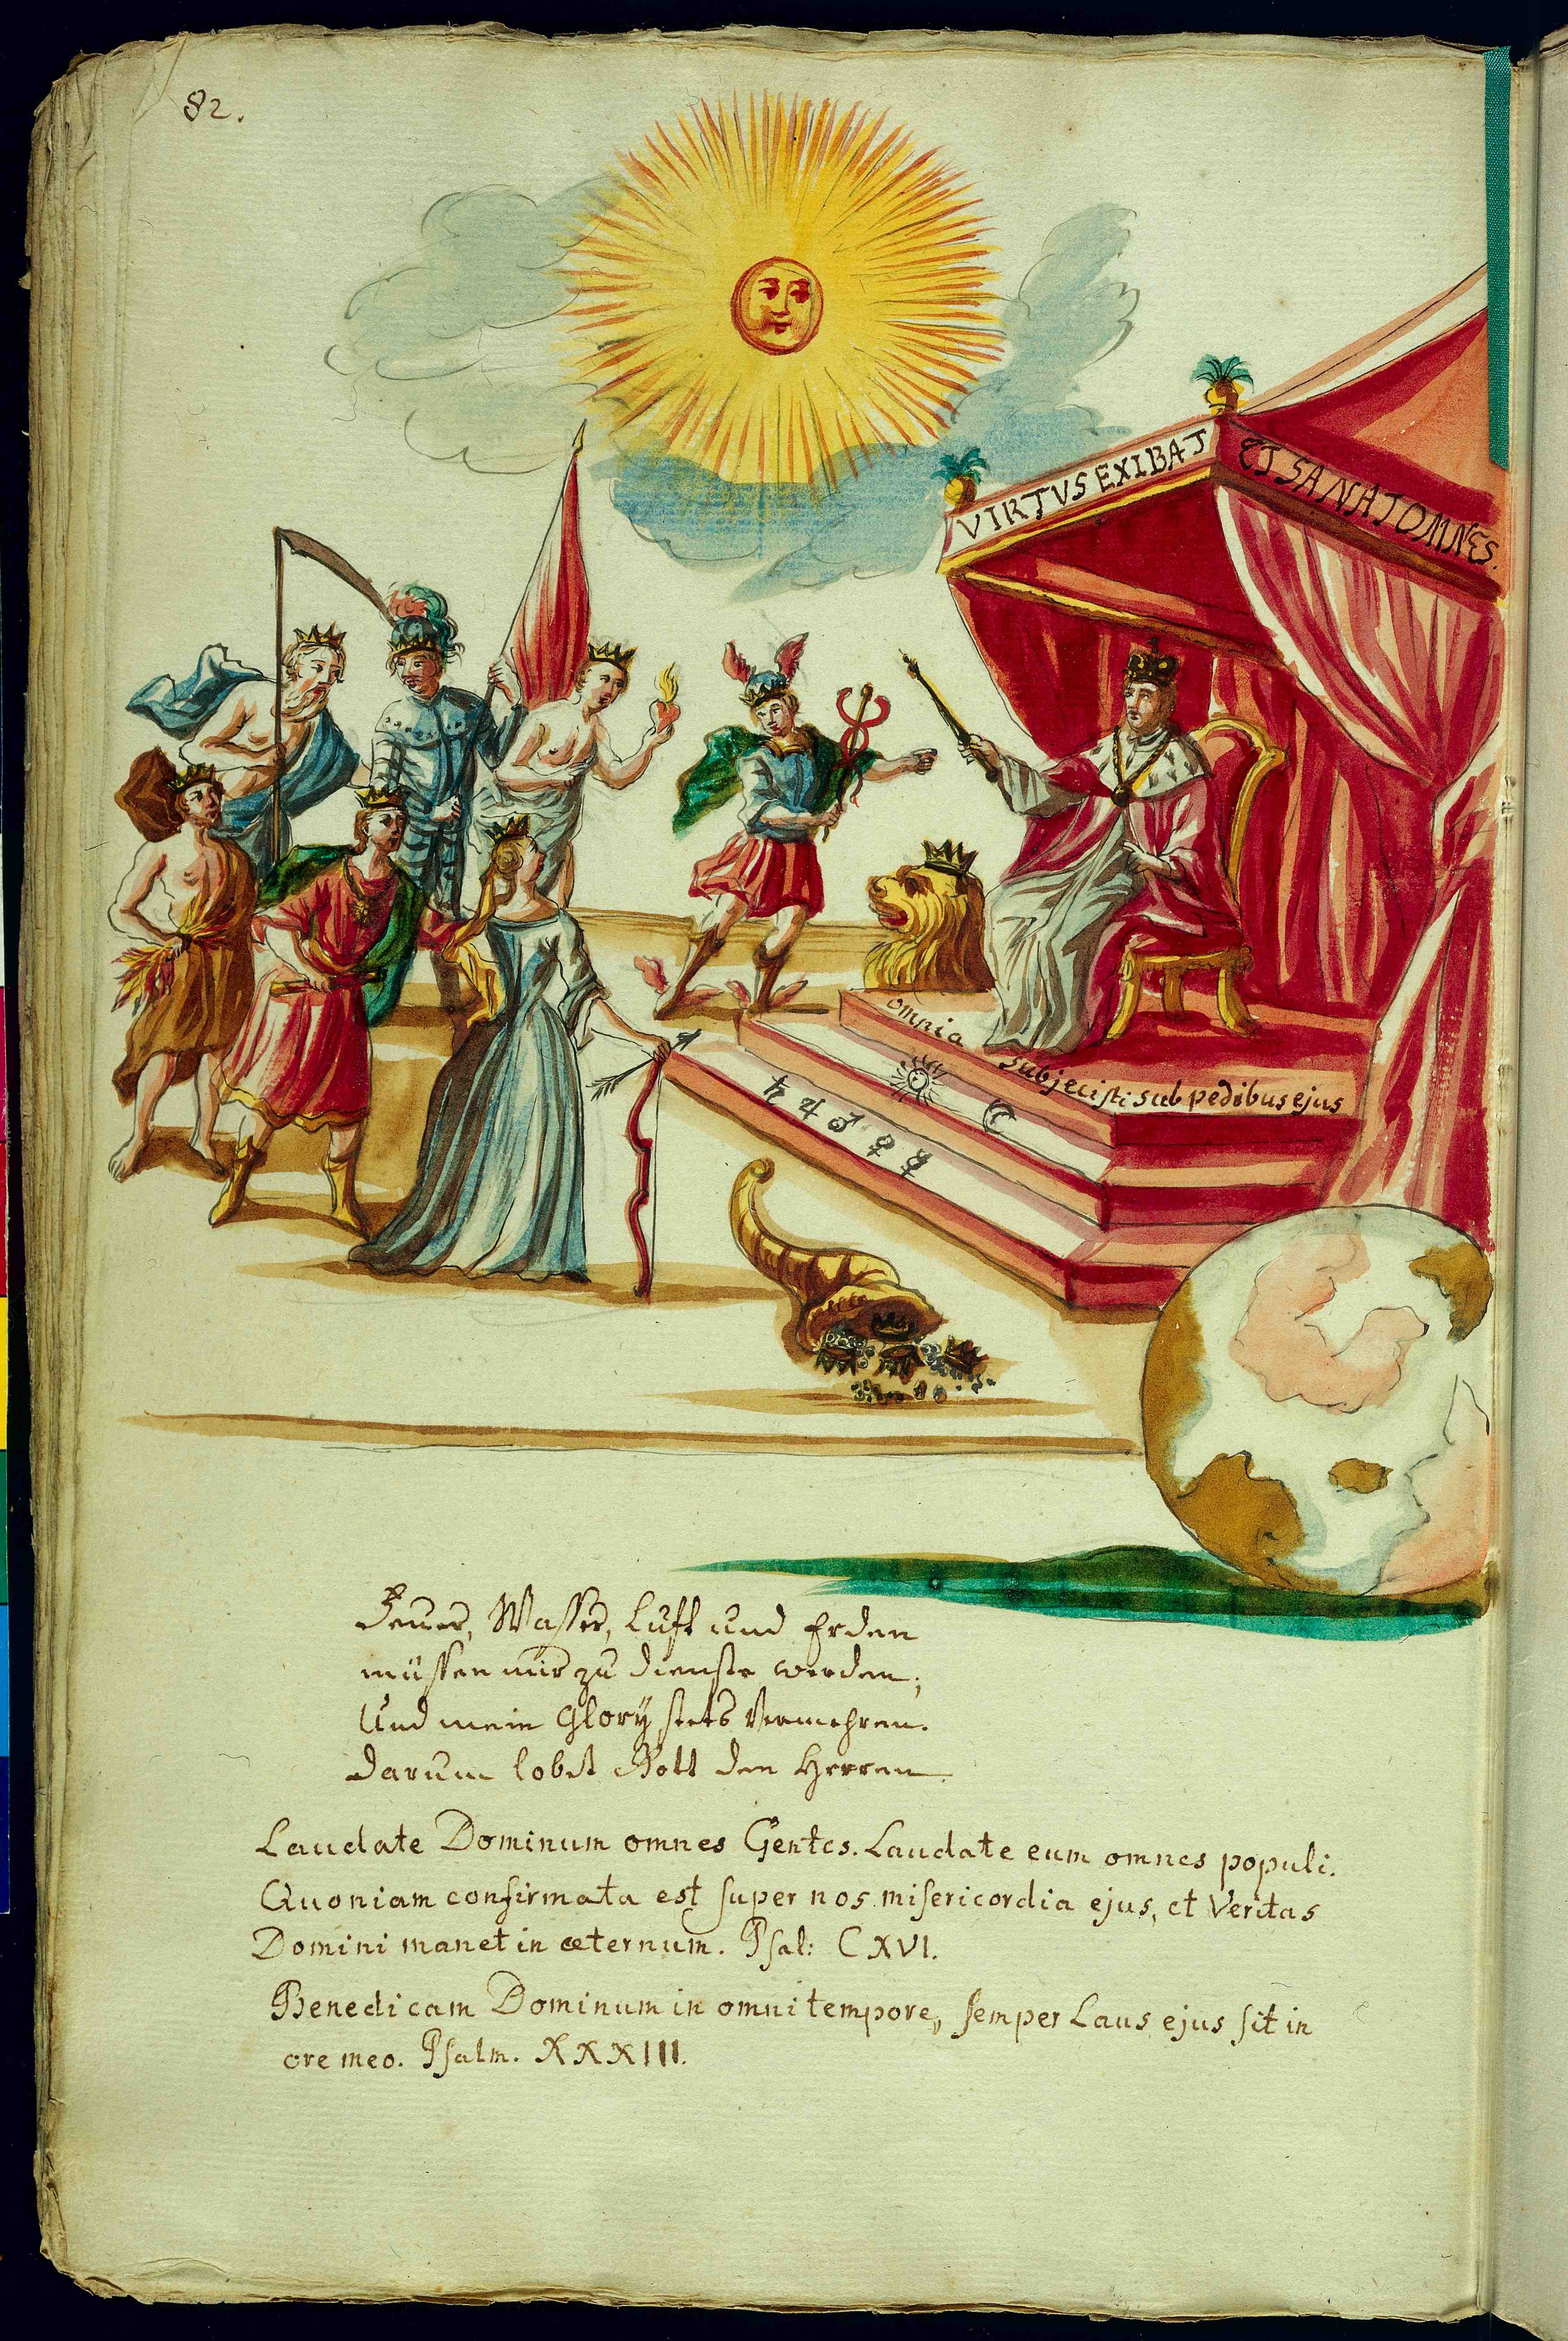 82.
VIRTVS EXIBAT
ET SANAT OMNES.
omnia subjecisti sub pedibus ejus
☉ ☾
♄ ♃ ♂ ♀ ☿
Feuer, Wasser, Lufft und Erden
müssen mir zu dienste werden;
Und mein Glory stets Vermehren.
darum lobet Gott den Herren
Laudate Dominum omnes Gentes. Laudate eum omnes populi.
Quoniam confirmata est super nos misericordia ejus, et Veritas
Domini manet in æternum. Psal: CXVI.
Benedicam Dominum in omni tempore, semper Laus ejus sit in
ore meo. Psalm. XXXIII.